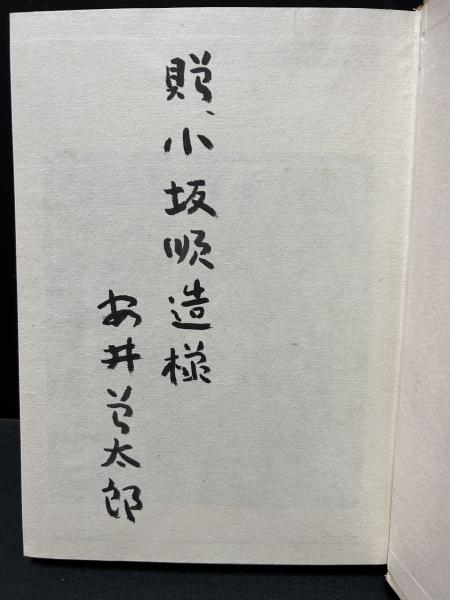 贈、小坂順造様
安井曽太郎